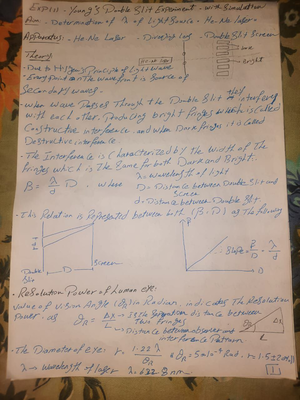 Exp(1) - Young's Double Slit Experiment - with Simulation
Aim - Determination of λ of Light Source - He-Ne Laser
Apparatus: - He-Ne Laser - Double Slit Screen
Theory:
Bright
- Due to Principle of Light Wave
- Every Point in the wave front is Source of
Secondary waves.
- when wave Passes Through the Double Slit they interfere
with each other Producing bright fringes which is called
Constructive interference and when Dark fringes it is called
Destructive interference.
- The Interference is Characterized by the width of The
fringes which is The Same for both Dark and Bright.
β = λ/d D , where λ = wavelength of light
D = Distance between Double Slit and
Screen
d = Distance between Double Slit
- This Relation is between both (β, D) as The following
β
Slope = β/D = λ/d
Double
Slit
D
Screen
D
- Resolution Power of human eye:
value of vision Angle (θR) in Radian, indicates The Resolution
Power, as θR = Δ/L distance between
Two fringes
Distance between observer and
interference Pattern
L
- The Diameter of eye: r = 1.22 λ/θR
λ → wavelength of laser
1